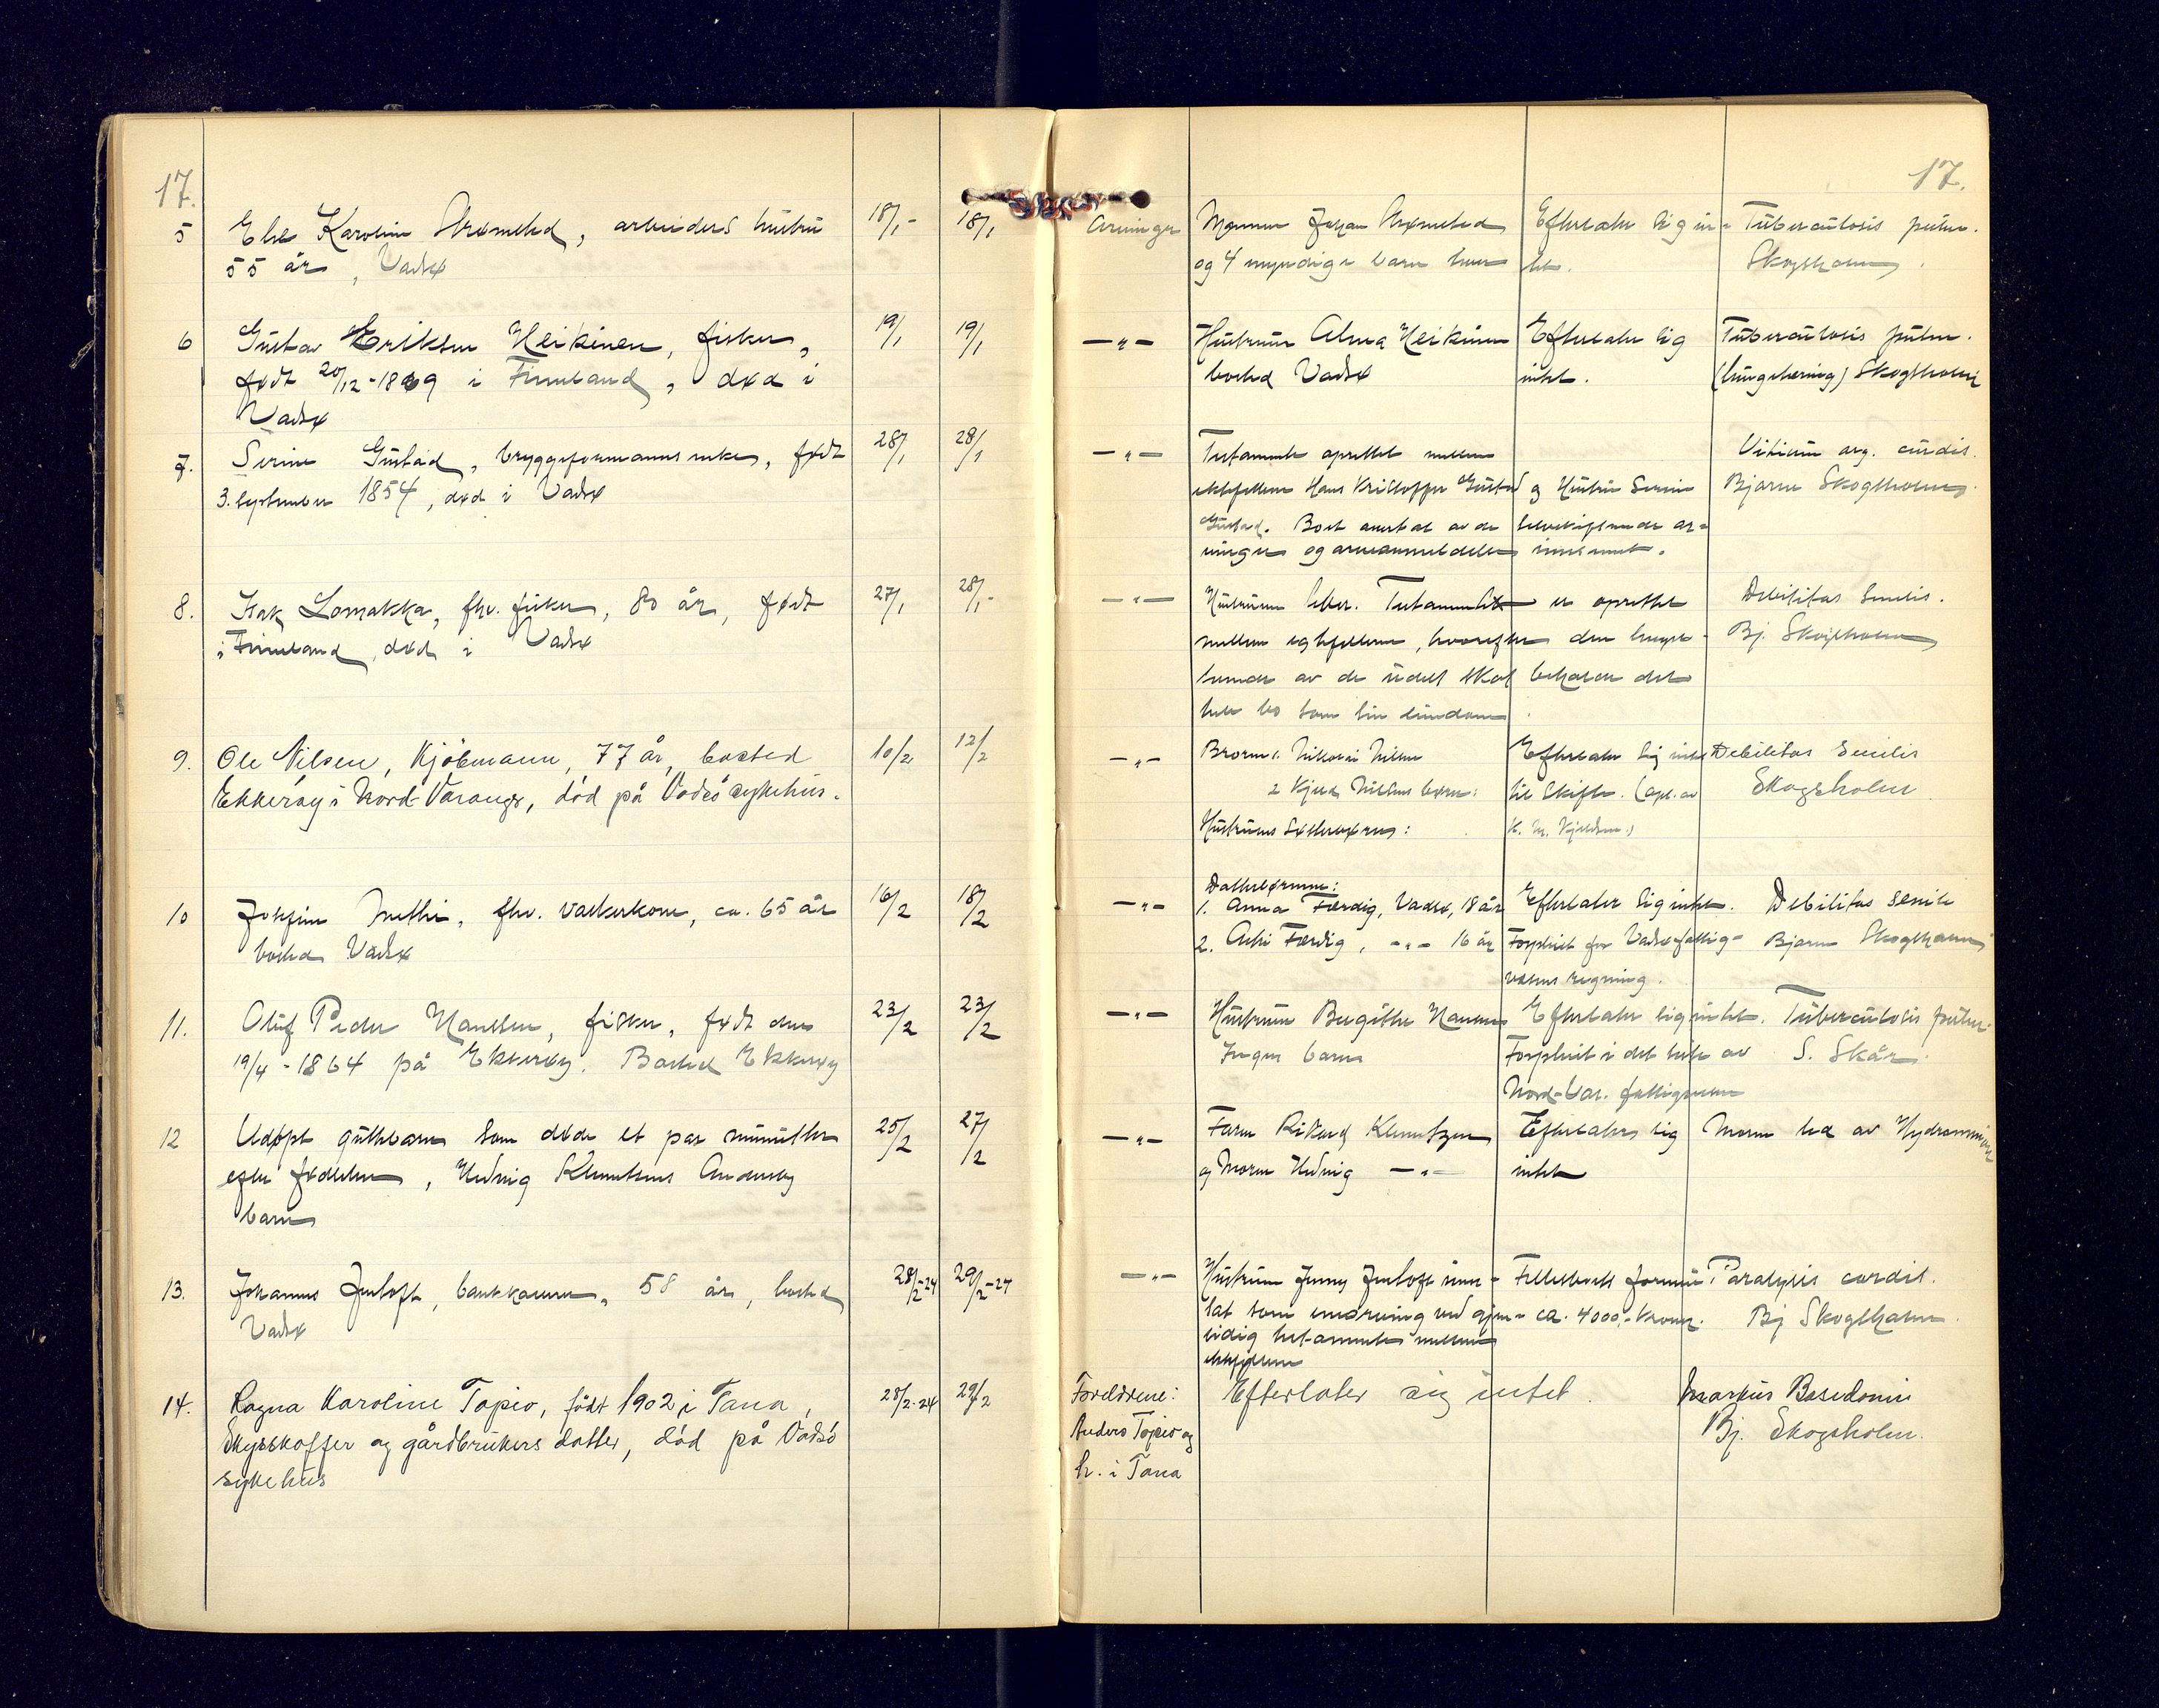 17.
17.
5 Else Karoline Strømsted, arbeiders hustru 18/1 - 18/1
55 år, Vadsø
Arvinger Mannen Johan Strømsted Efterlater sig in=
og 4 myndige barn tet.
Tuberculosis pulm.
Skogsholm.
6 Gustav Eriksen Heikinen, fisker, 19/1 19/1
født 20/12-1869 i Finnland, død i
Vadsø
—„— Hustruen Alma Heikinen Efterlater sig
bosted Vadsø intet.
Tuberculosis pulm.
(lungetæring) Skogsholm
7. Serine Gustad, bryggeformanns enke, født 28/1 28/1
3. september 1854, død i Vadsø
—„— Testamente oprettet mellem
ektefellene Hans Kristoffer Gustad og Hustru Serine
Gustad. Boet overtat av de selvskiftende ar=
vinger og arveanmeldelse innsendt.
Vitium org. cordis.
Bjarne Skogsholm
8. Isak Lomakka, fhv. fisker, 80 år, født 27/1 28/1 -
i Finnland, død i Vadsø
—„— Hustruen lever. Testamente er oprettet
mellem egtefellene, hvorefter den lengst-
levende av de skal beholde det
hele bo som sin eiendom.
Debilitas senilis.
Bj. Skogsholm
9. Ole Nilsen, Kjøbmann, 77 år, bosted 10/2 12/2
Ekkerøy i Nord-Varanger, død på Vadsø sykehus.
—„— Broren: Nilsen Efterlater sig intet
2 Nilsens børn: til Skifte. (opl. av
Hustruens Søsterbørn: K. M. Kjeldsen.)
Debilitas Senilis
Skogsholm
10 Methi, fhv. vaskerkone, ca. 65 år 16/2 18/2
bosted Vadsø
—„— Datterbørnene:
1. Anna Færdig, Vadsø, 18 år Efterlater sig intet.
2. Færdig, —„— 16 år Forpleiet for Vadsø fattig-
vesens regning.
Debilitas senile
Bjarne Skogsholm
11. Oluf Peder Hansen, fisker, født den 23/2 23/2
19/4-1864 på Ekkerøy. Bosted Ekkerøy
—„— Hustruen Bergithe Hansen Efterlater sig intet.
Ingen barn Forpleiet i det hele av
Nord-Var. fattigvesen
Tuberculosis pulm.
S. Skår.
12 Udøpt guttebarn som døde et par minutter 25/2 27/2
efter fødselen, Hedvig Klemetsens Andersby
barn
—„— Faren Rikard Klemetzen Efterlater sig
og Moren Hedvig —„— intet
Moren led av
13. Johannes Jentoft, bankkasserer, 58 år, bosted 28/2-24 29/2-24
Vadsø
—„— Hustruen Jenny Jentoft inn= Fellesboets formue
sat som enearving ved gjen= ca. 4000,- kroner.
sidig testamente mellem
ektefellene
Paralysis cordis.
Bj Skogsholm.
14. Ragna Karoline Topio, født 1902 i Tana, 28/2-24 29/2
Skysskaffer og gårdbrukers datter, død på Vadsø
sykehus
Foreldrene: Efterlater sig intet.
Anders Topio og
h. i Tana
Markus Basedowii
Bj. Skogsholm.